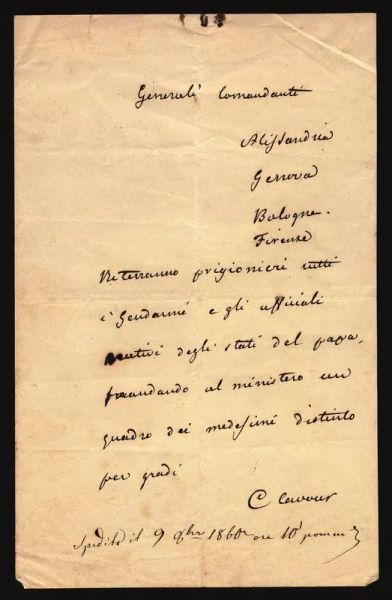 Generali Comandanti
Alessandria
Genova
Bologna
Firenze
Riterranno prigionieri tutti
i Gendarmi e gli ufficiali
nativi degli stati del papa,
mandando al ministero un
quadro dei medesimi distinto
per gradi
C Cavour
Spedito il 9 9bre 1860 ore 10 pomme